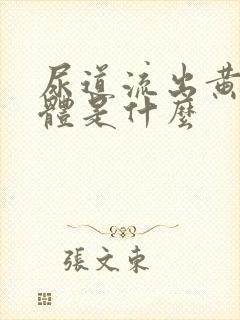 尿道流出黃
體是什麼
張文東